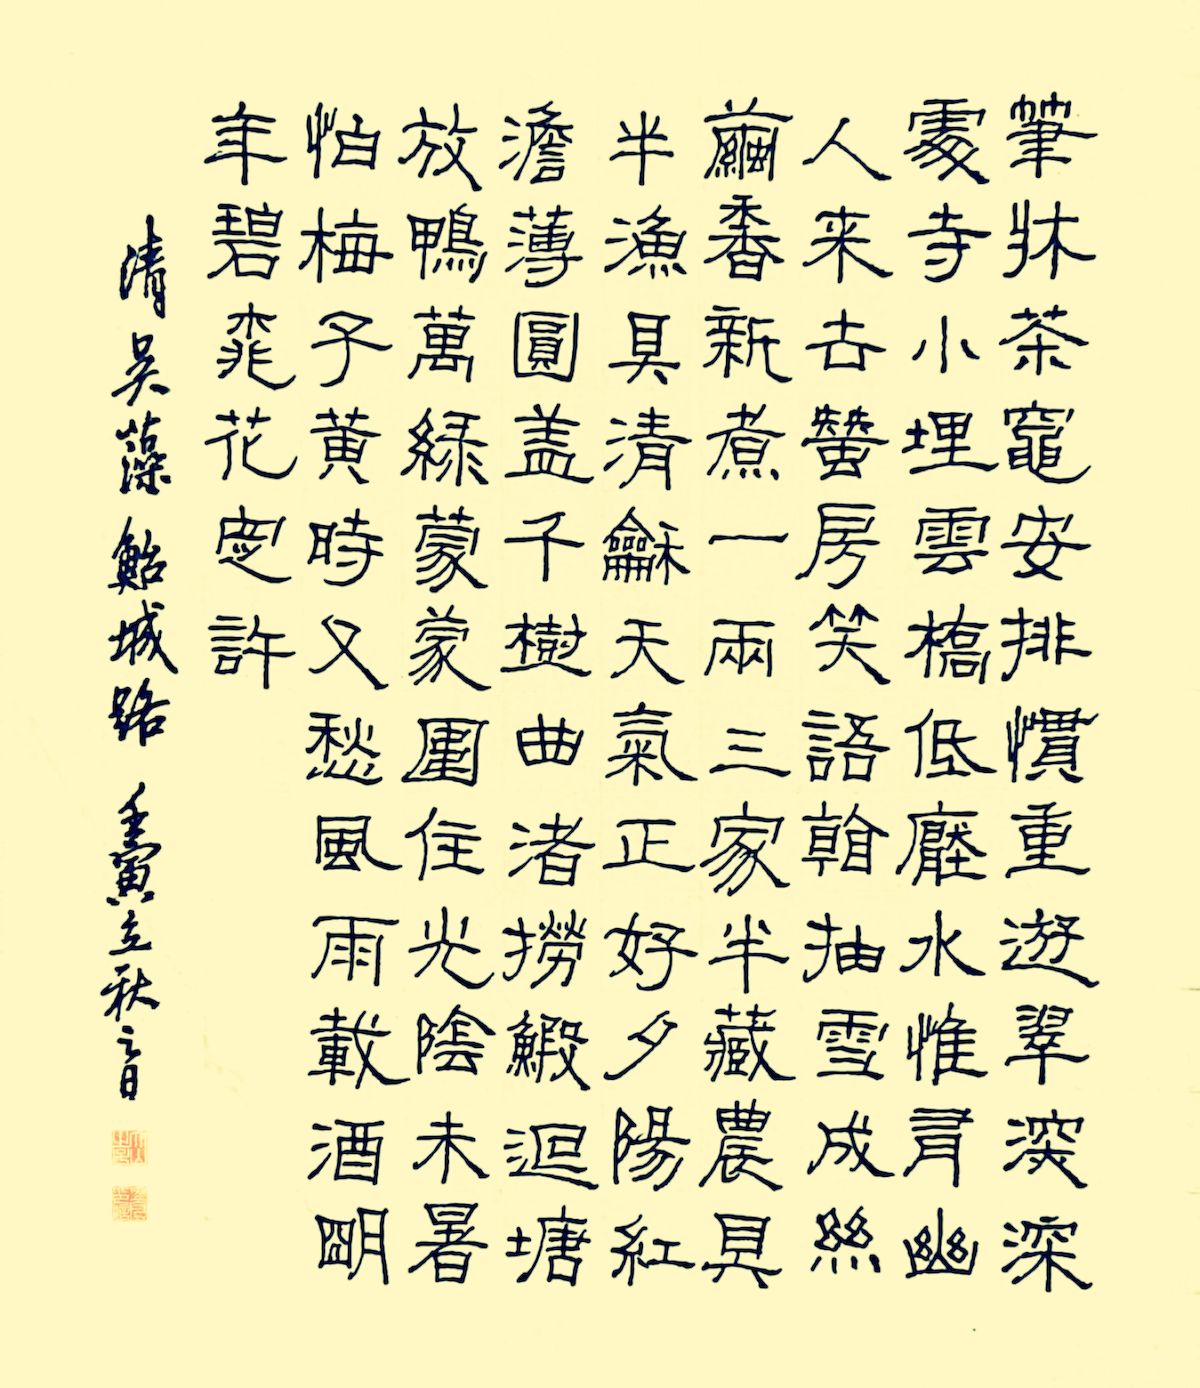 筆牀茶竈安排慣重遊翠深深
處寺小埋雲橋低壓水惟有幽
人来去蠶房笑語看抽雪成絲
繭香新煮一兩三家半藏農具
半漁具清龢天氣正好夕陽紅
澹薄圓盖千樹曲渚撈鰕迴塘
放鴨萬緑蒙蒙圍住光陰未暑
怕梅子黄時又愁風雨載酒明
年碧桃花定許
清吴藻鮐城路 壬寅立秋之日